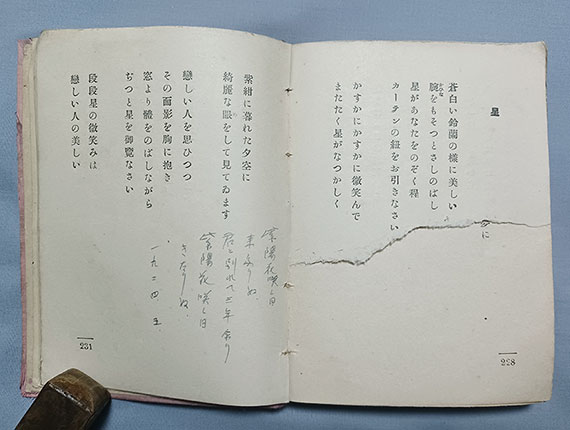 星
蒼白い鈴蘭の樣に美しい
腕をもそつとさしのばし
星があなたをのぞく程
カーテンの紐をお引きなさい
かすかにかすかに微笑んで
またたく星がなつかしく
に
228
紫紺に暮れた夕空に
綺麗な眼をして見てゐます
戀しい人を思ひつつ
その面影を胸に抱き
窓より體をのばしながら
ぢつと星を御覽なさい
段段星の微笑みは
戀しい人の美しい
紫陽花咲く日
来たりぬ、
君に別れて三年余り
紫陽花咲く日
きたりぬ、
一九二四、五
231